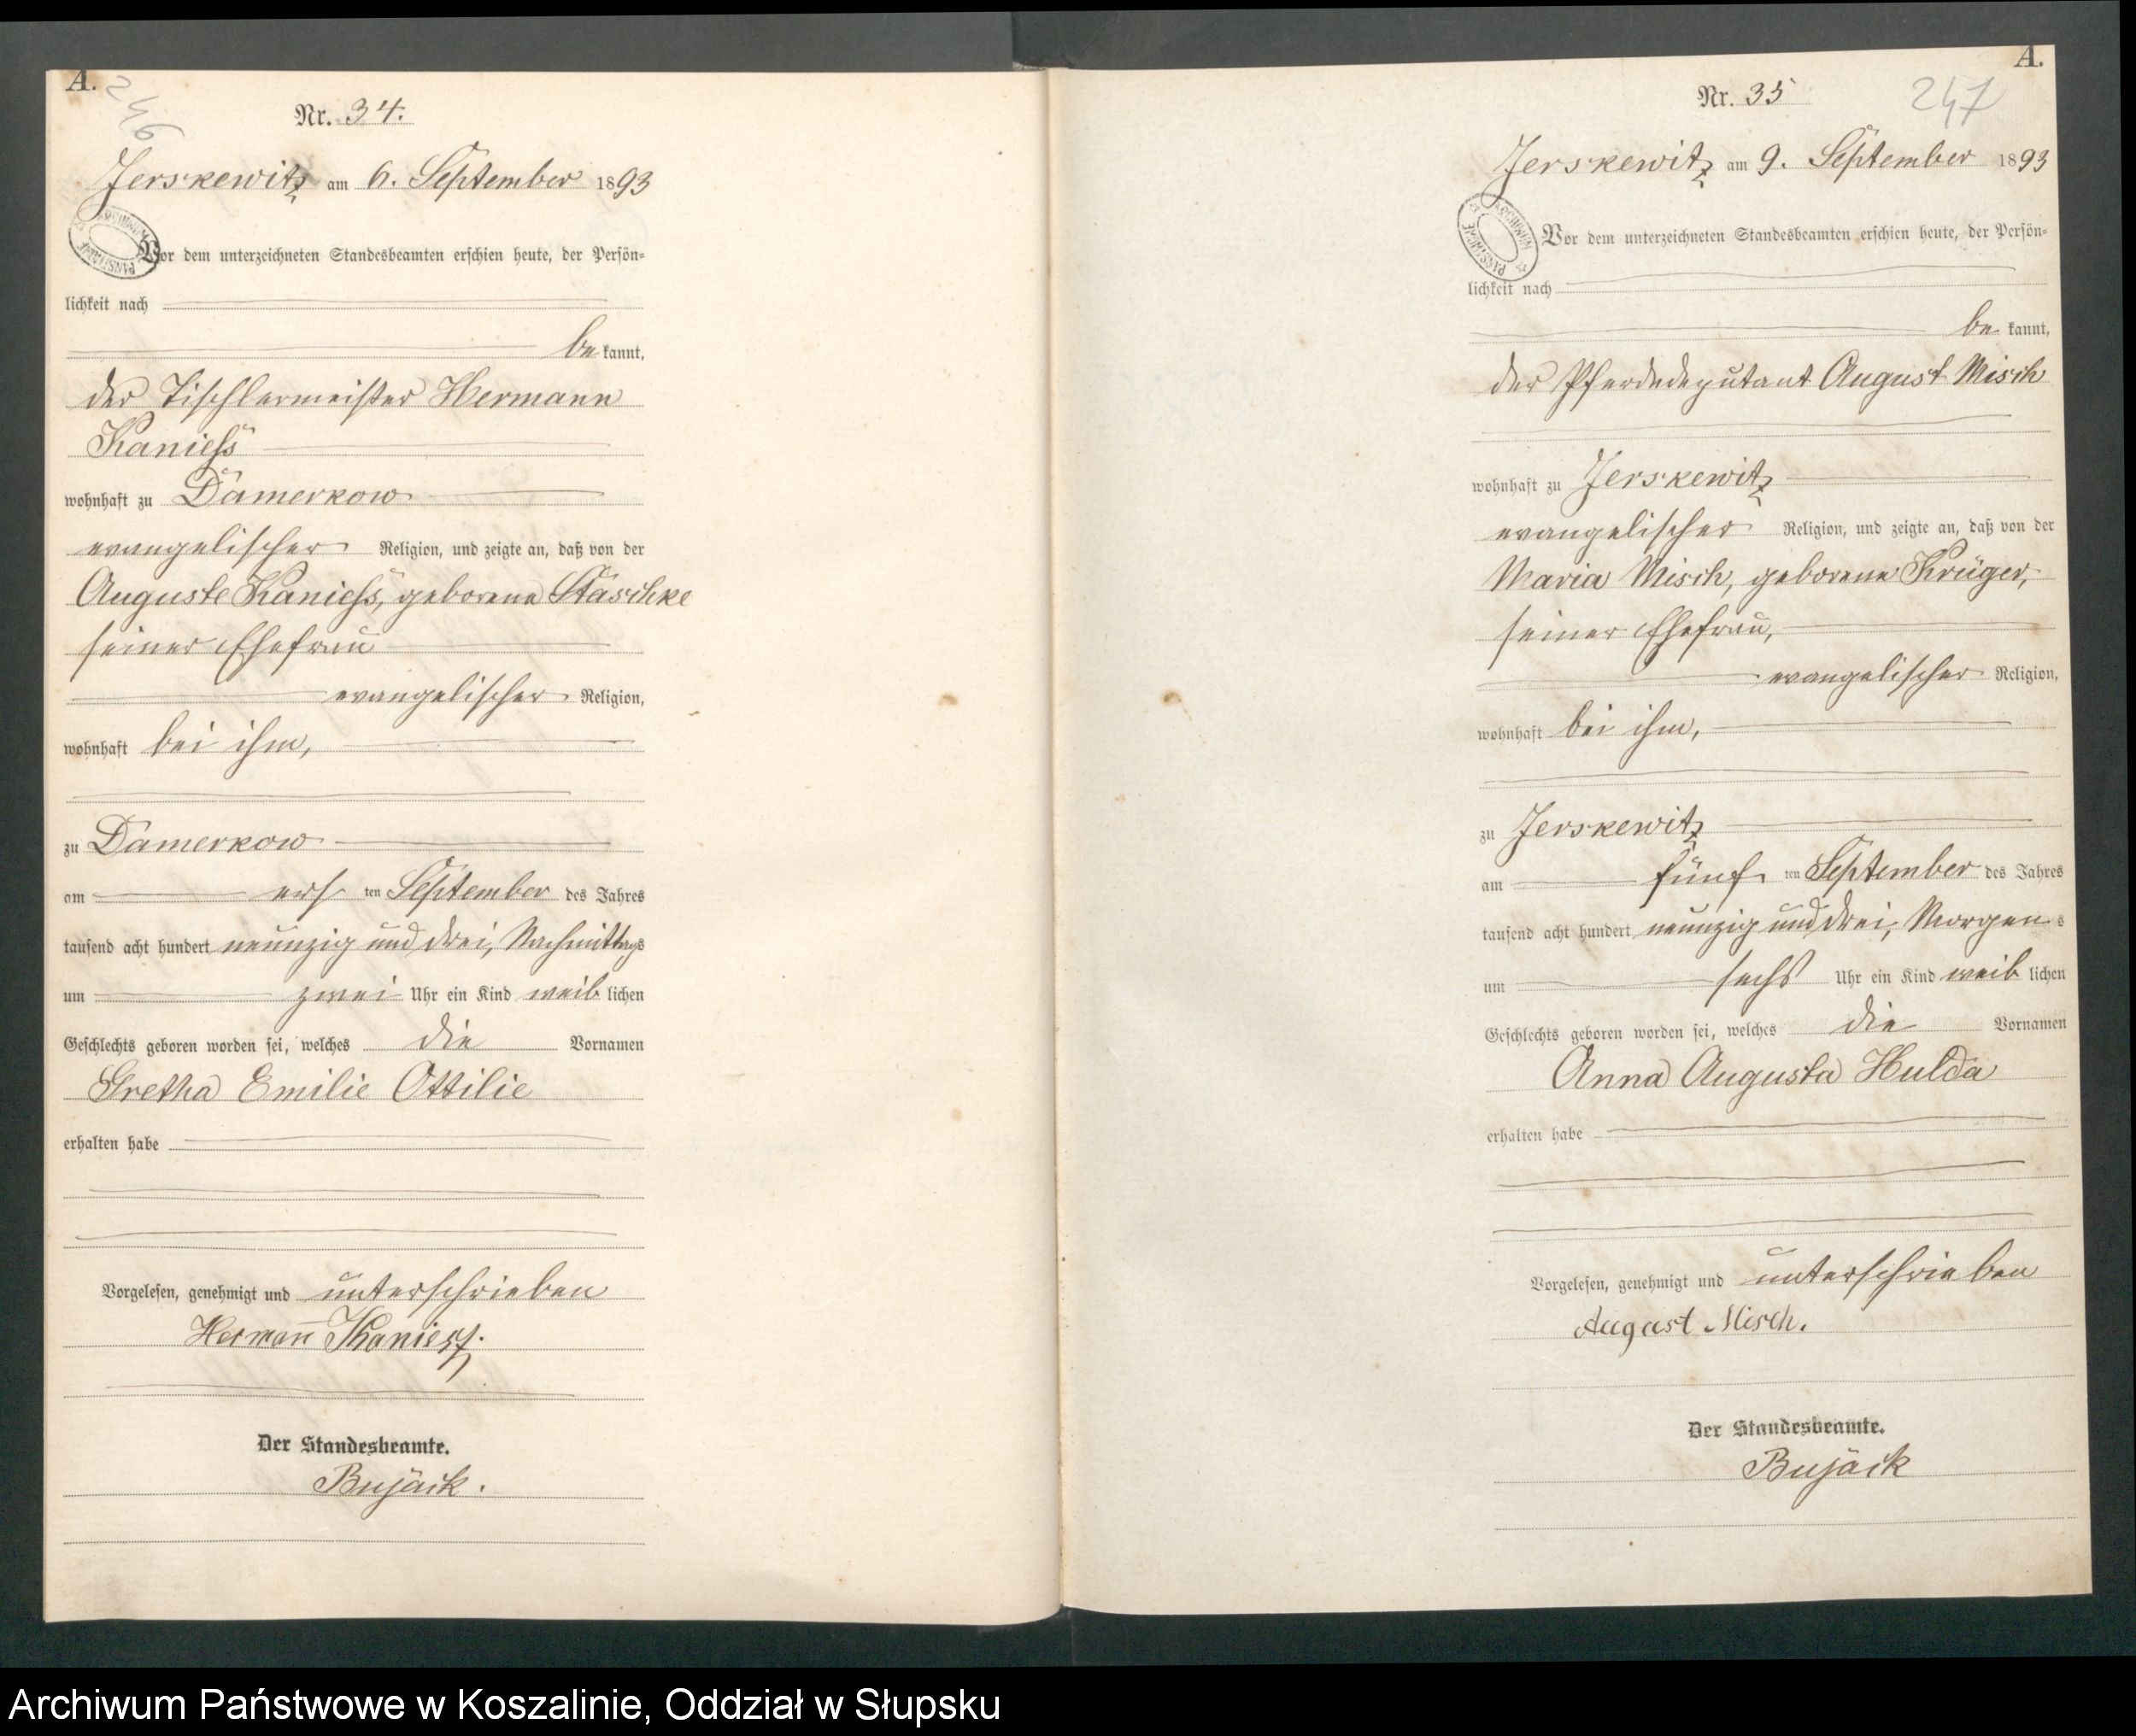 A.
246
Nr. 34.
Jerskewitz am 6. September 1893
Vor dem unterzeichneten Standesbeamten erschien heute, der Persön-
lichkeit nach
be kannt,
der Tischlermeister Hermann
Kaniess
wohnhaft zu Damerkow
evangelischer Religion, und zeigte an, daß von der
Auguste Kaniess, geborene Staschke
seiner Ehefrau
evangelischer Religion,
wohnhaft bei ihm,
zu Damerkow
am ers ten September des Jahres
tausend acht hundert neunzig und drei, Nachmittags
um zwei Uhr ein Kind weib lichen
Geschlechts geboren worden sei, welches die Vornamen
Gretha Emilie Ottilie
erhalten habe
Vorgelesen, genehmigt und unterschrieben
Hermann Kaniess.
Der Standesbeamte.
Bujack.
A.
247
Nr. 35
Jerskewitz am 9. September 1893
ARCHIWUM PAŃSTWOWE
Vor dem unterzeichneten Standesbeamten erschien heute, der Persön-
lichkeit nach
be kannt,
der Pferdedeputant August Misch
wohnhaft zu Jerskewitz
evangelischer Religion, und zeigte an, daß von der
Maria Misch, geborene Krüger,
seiner Ehefrau,
evangelischer Religion,
wohnhaft bei ihm,
zu Jerskewitz
am fünf ten September des Jahres
tausend acht hundert neunzig und drei, Morgen s
um sechs Uhr ein Kind weib lichen
Geschlechts geboren worden sei, welches die Vornamen
Anna Augusta Hulda
erhalten habe
Vorgelesen, genehmigt und unterschrieben
August Misch.
Der Standesbeamte.
Bujack
Archiwum Państwowe w Koszalinie, Oddział w Słupsku